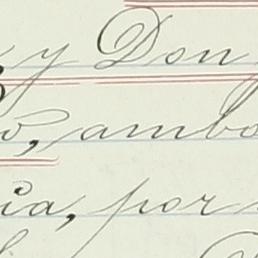 y Don
ambo
ia, por